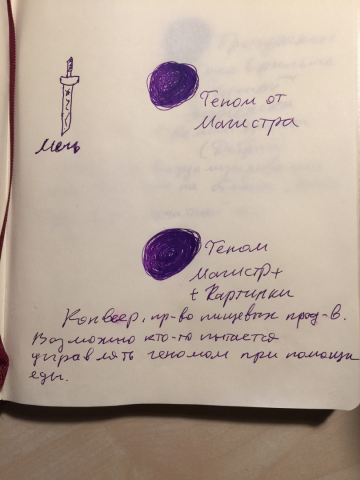 Меч
Геном от
Магистра
Геном
Магистр +
+ Картинки
Конвеер, пр-во пищевых прод-в.
Возможно кто-то пытается
управлять геномом при помощи
еды.